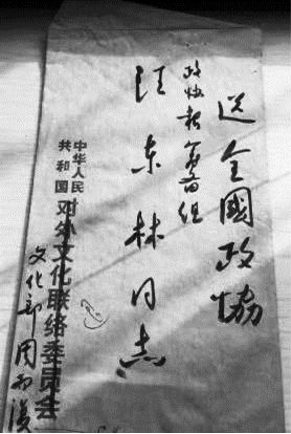 送全國政協
政协報籌备组
汪东林同志
中华人民
共和国
对外文化联络委员会
文化部周而復